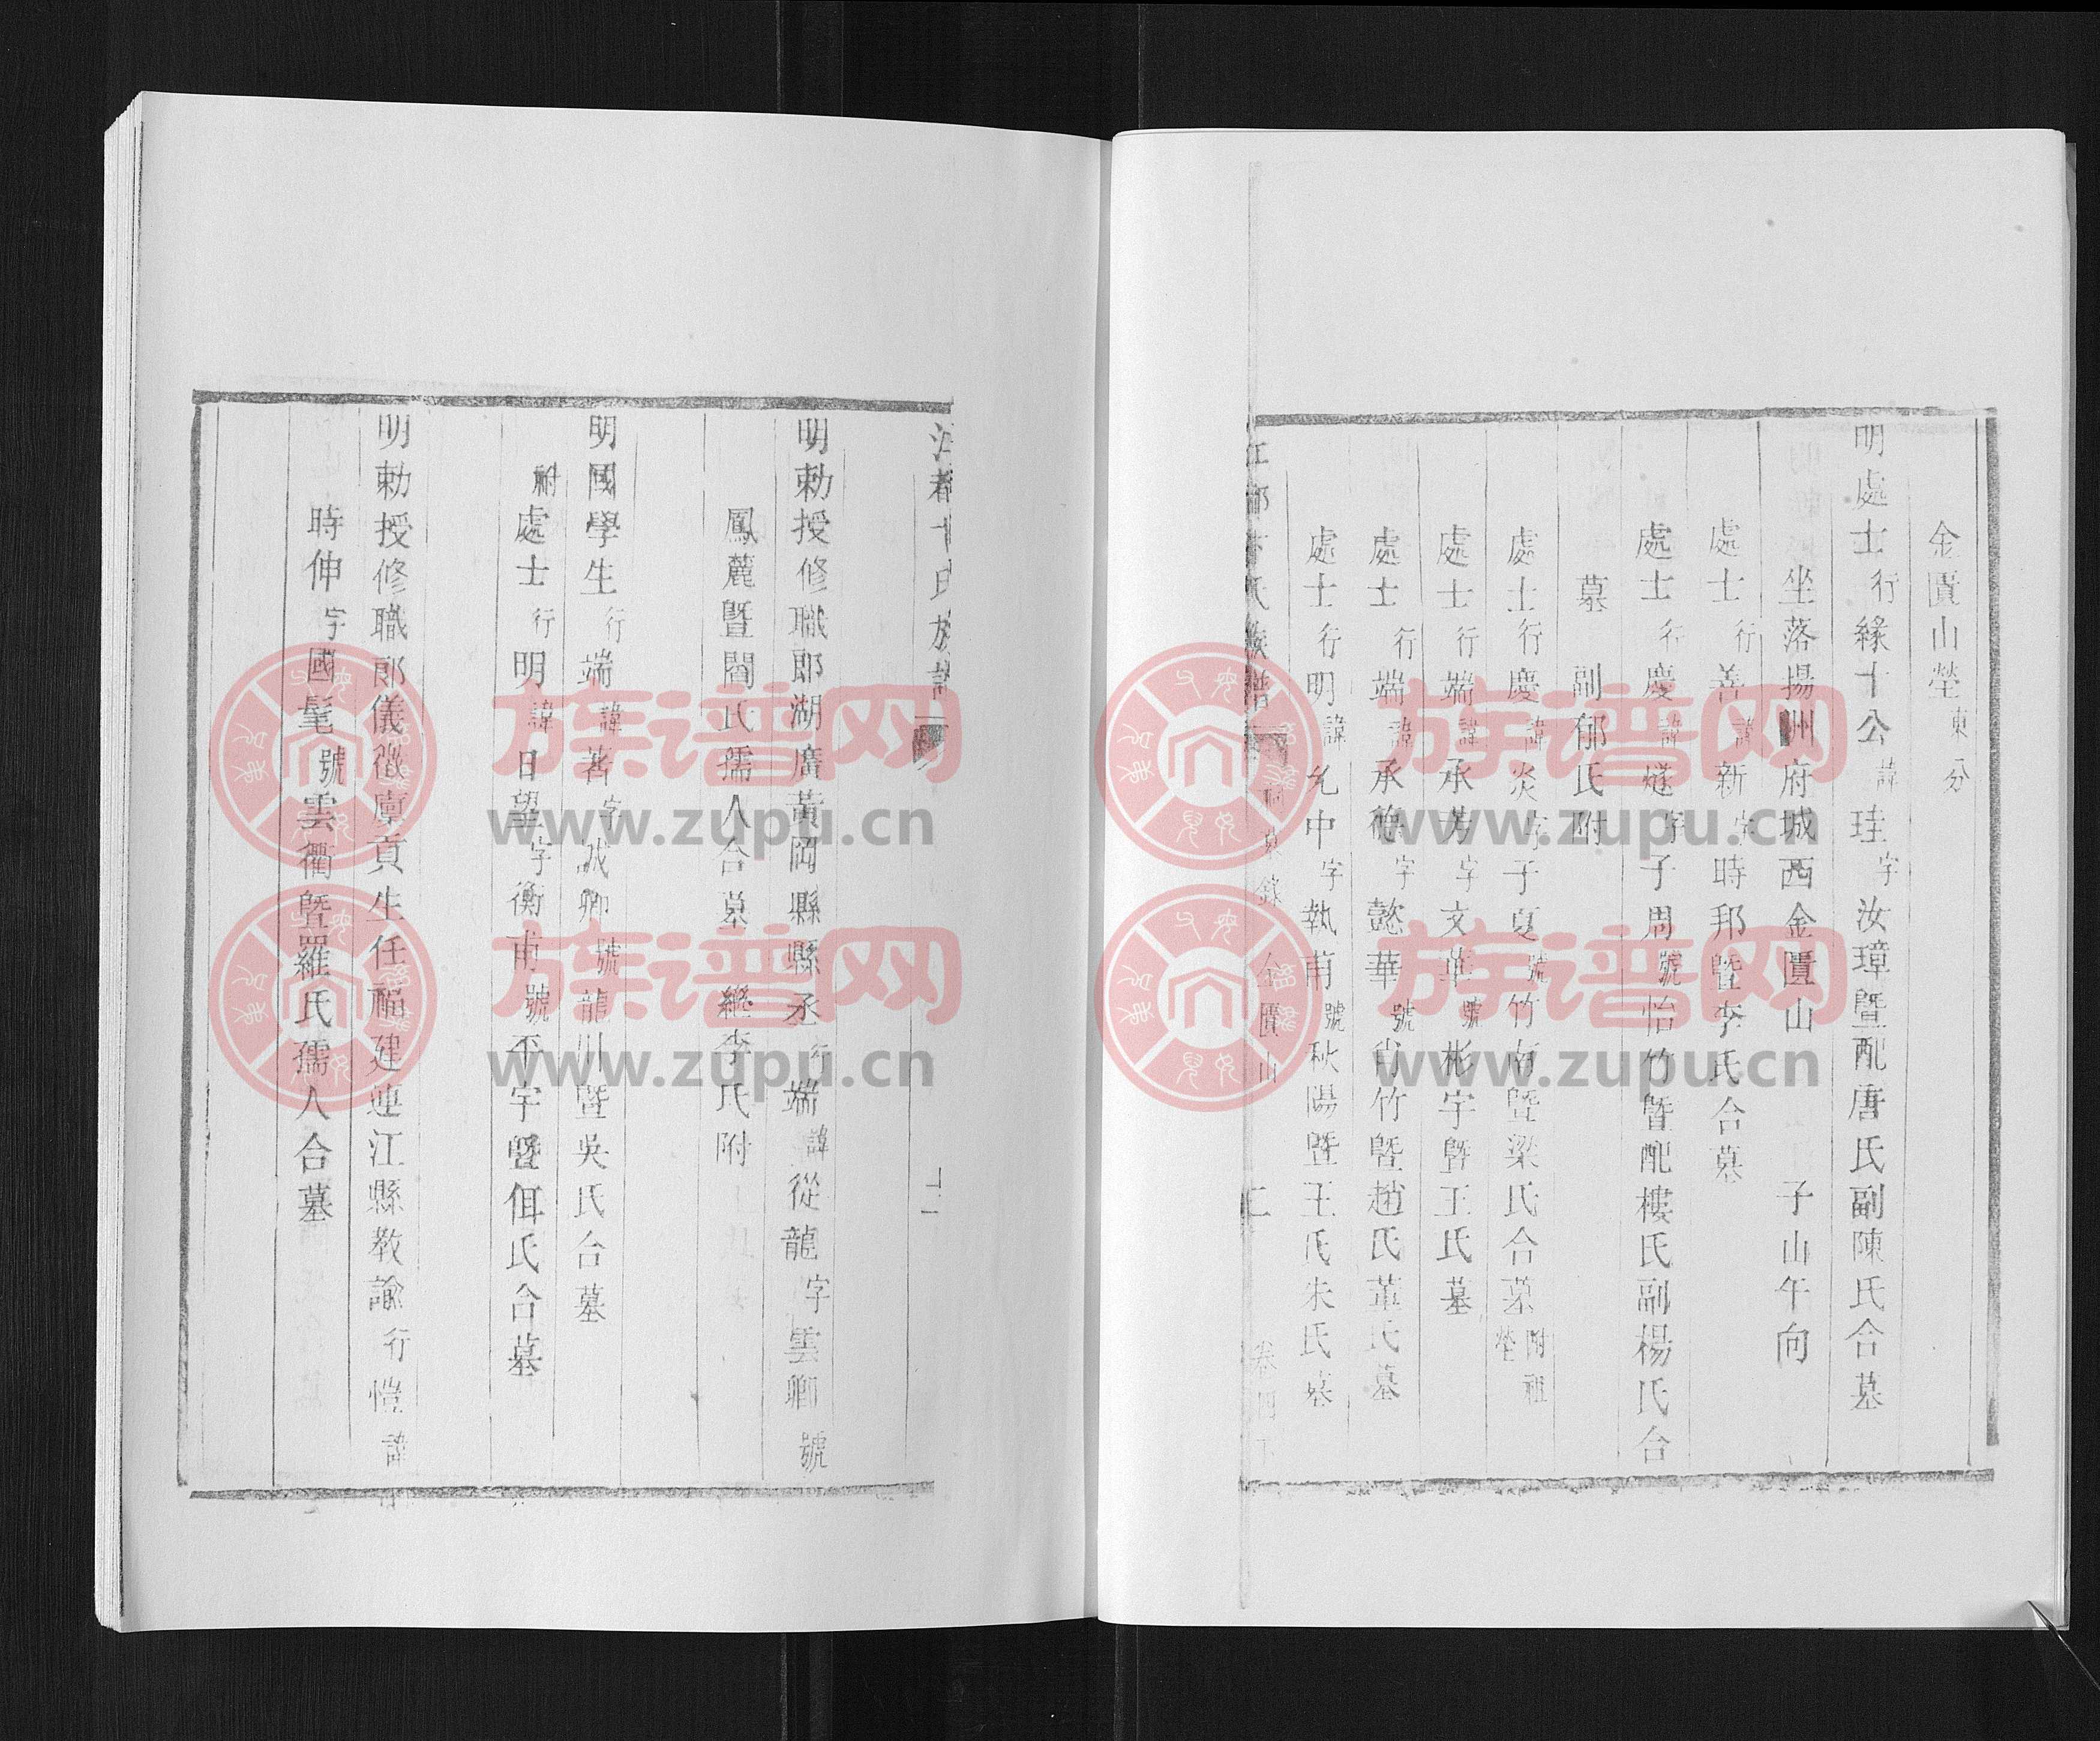 金匱山塋東分
明處士行緣十公諱珪字汝璋暨配唐氏副陳氏合墓
坐落揚州府城西金匱山 子山午向
處士行善諱新字時邦暨李氏合墓
處士行慶諱燧字子周號怡竹暨配樓氏副楊氏合
墓 副郁氏附
處士行慶諱炎字子夏號竹南暨梁氏合墓附祖塋
處士行端諱承芳字文華號彬宇暨王氏墓
處士行端諱承德字懿華號肖竹暨趙氏董氏墓
處士行明諱允中字執甫號秋陽暨王氏朱氏墓
江都卞氏族譜 金匱山 二 卷四下
江都卞氏族譜
明勅授修職郎湖廣黃岡縣縣丞行端諱從龍字雲卿號
鳳麓暨閻氏孺人合墓 繼李氏附
明國學生行端諱著字誠卿號龍川暨吳氏合墓
附處士行明諱日望字衡甫號平宇暨佴氏合墓
明勅授修職郎儀徵廩貢生任福建連江縣教諭行愷諱
時伸字國髦號雲衢暨羅氏孺人合墓
族谱网
www.zupu.cn
族谱网
www.zupu.cn
族谱网
www.zupu.cn
族谱网
www.zupu.cn